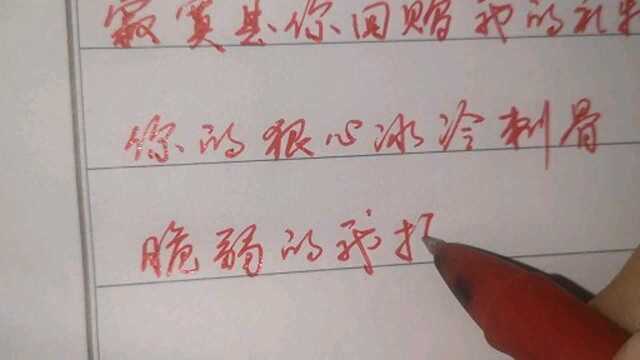 寂寞是你回赠我的礼
你的狠心冰冷刺骨
脆弱的我